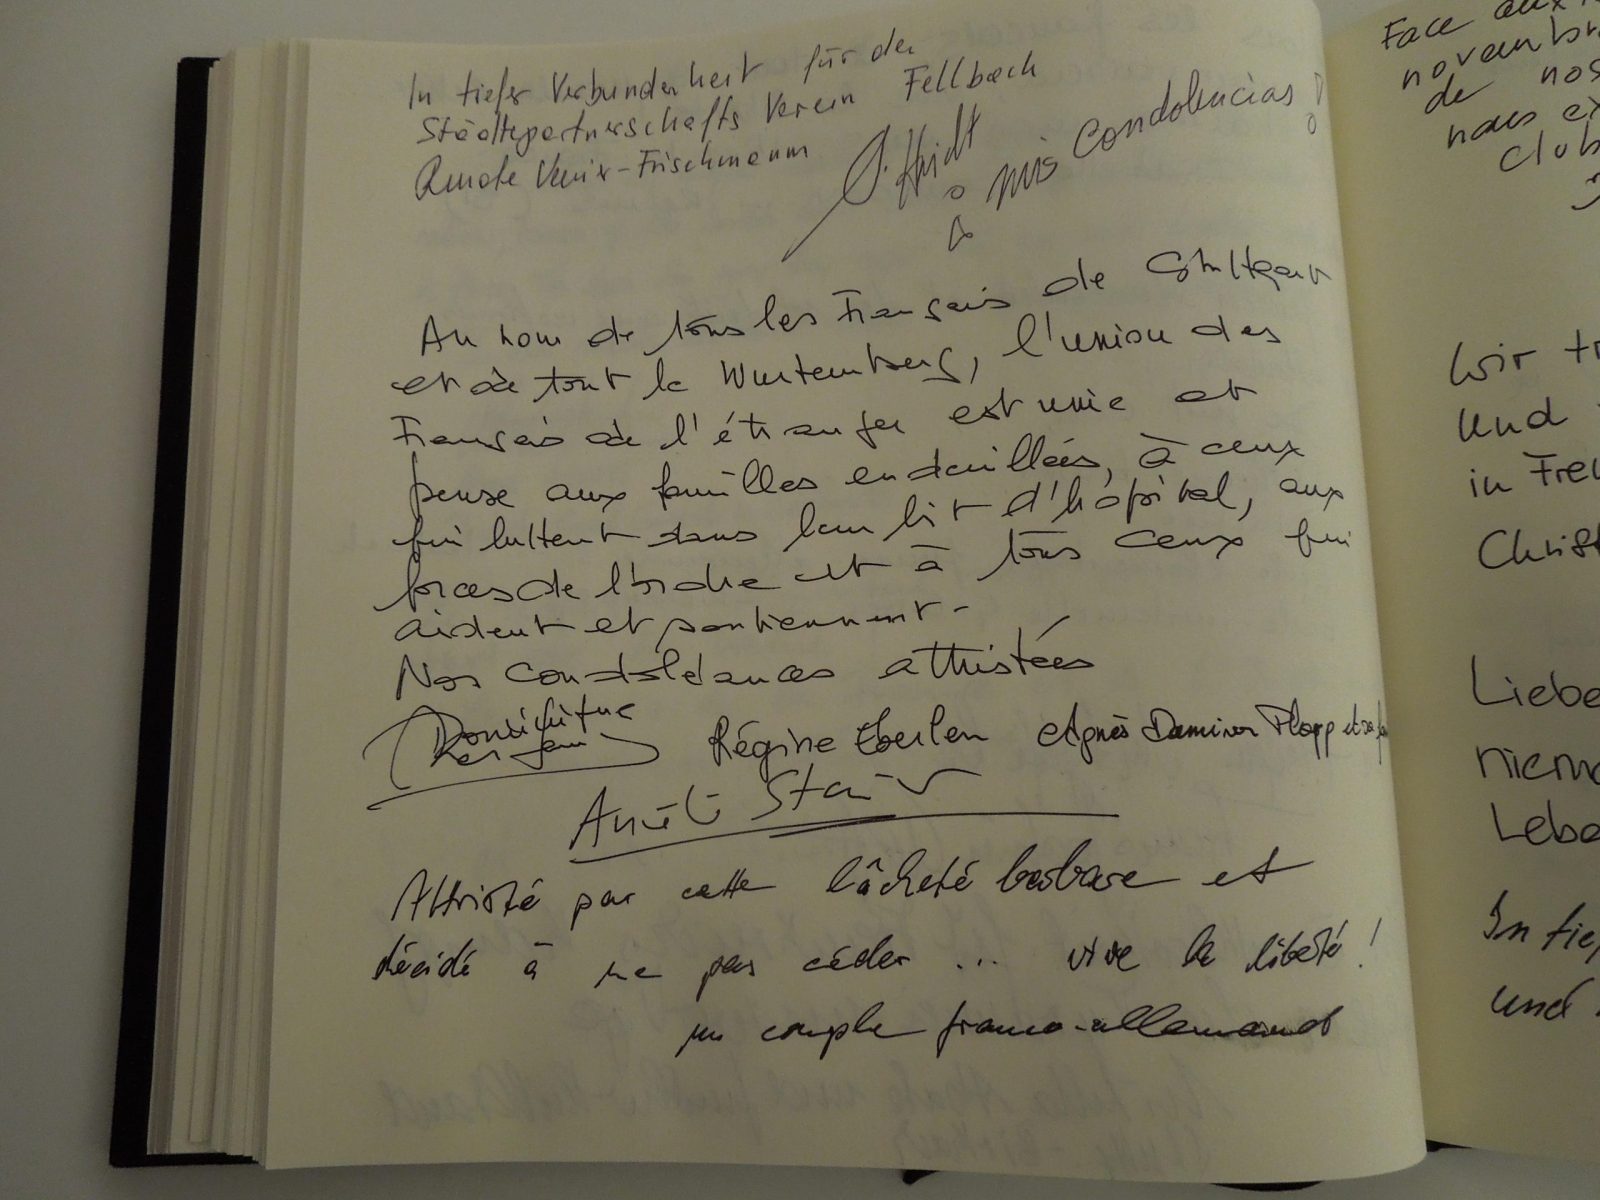 In tiefer Verbundenheit für den
Städtepartnerschafts Verein Fellbach
¡ mis Condolencias !
Au nom de tous les Français de Stuttgart
et de tout le Wurtemberg, l'union des
Français de l'étranger est unie et
pense aux familles endeuillées, à ceux
qui luttent dans leur lit d'hôpital, aux
forces de l'ordre et à tous ceux qui
aident et soutiennent -
Nos condoléances attristées
Régine Eberlen Agnès
Attristé par cette lâcheté barbare et
décidé à ne pas céder ... vive la liberté !
un couple franco-allemand
Face aux
novembr
de nos
nous ex
Club
Wir tr
und
in
Christ
Liebe
niem
Lebe
In tie
und